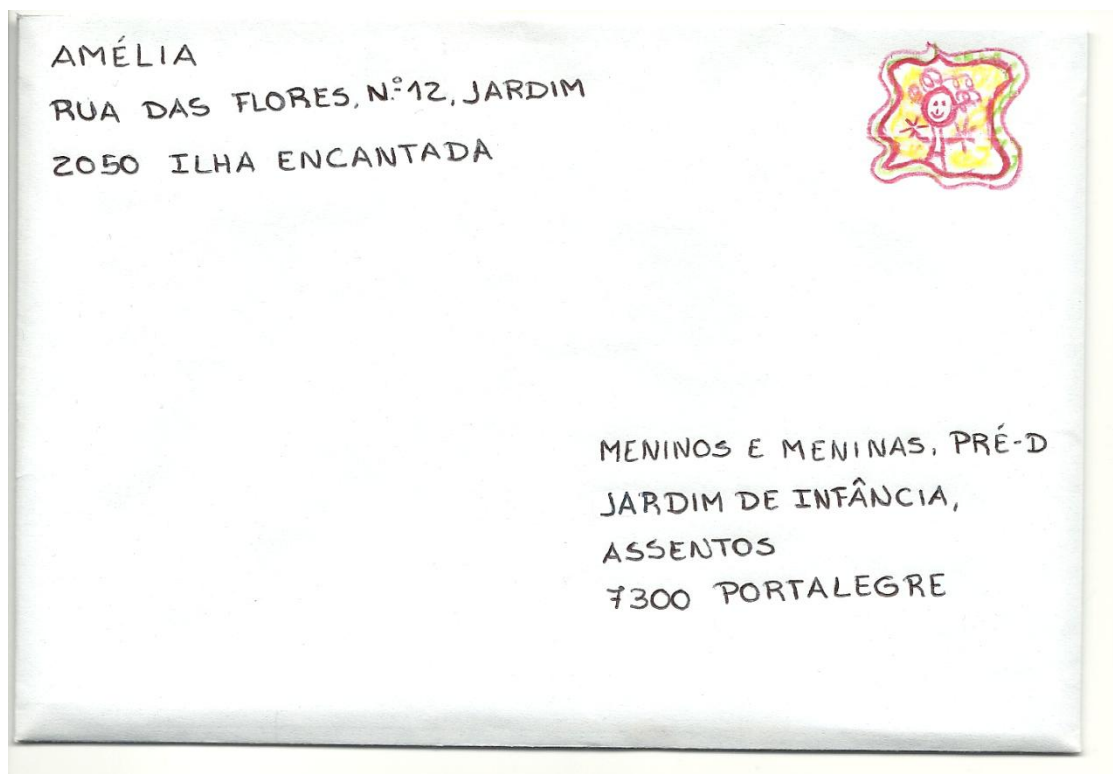 AMÉLIA
RUA DAS FLORES, N.º 12, JARDIM
2050 ILHA ENCANTADA
MENINOS E MENINAS, PRÉ-D
JARDIM DE INFÂNCIA,
ASSENTOS
7300 PORTALEGRE